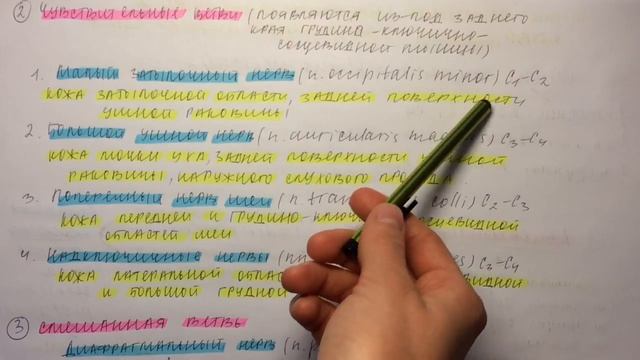 ② Чувствительные ветви (появляются из-под заднего
края грудино-ключично-
сосцевидной мышцы)
1. Малый затылочный нерв (n. occipitalis minor) C1-C2
кожа затылочной области, задней поверхности
ушной раковины
2. Большой ушной нерв (n. auricularis ma s) C3-C4
кожа мочки уха, задней поверхности ной
раковины, наружного слухового пр да.
3. Поперечный нерв шеи (n. tran colli) C2-C3
кожа передней и грудино-ключ сцевидной
областей шеи
4. Надключичные нервы (nn es) C3-C4
кожа латеральной облас видной
и большой грудной
③ Смешанная ветвь
Диафрагмальный нерв (n. p